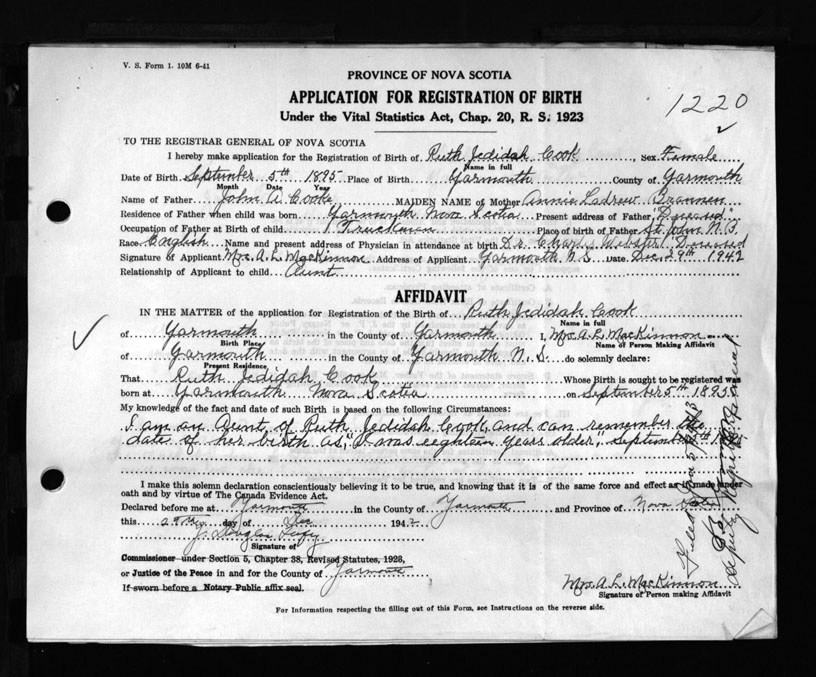 V. S. Form 1. 10M 6-41
PROVINCE OF NOVA SCOTIA
APPLICATION FOR REGISTRATION OF BIRTH
Under the Vital Statistics Act, Chap. 20, R. S. 1923
1220
TO THE REGISTRAR GENERAL OF NOVA SCOTIA
I hereby make application for the Registration of Birth of Ruth Jedidah Cook, Sex Female
Name in full
Date of Birth September 5th 1895 Place of Birth Yarmouth County of Yarmouth
Month Date Year
Name of Father John A. Cooke MAIDEN NAME of Mother Annie Ladrew Brannen
Residence of Father when child was born Yarmouth Nova Scotia Present address of Father Deceased
Occupation of Father at Birth of child Truckman Place of birth of Father St. John N.B.
Race English Name and present address of Physician in attendance at birth Dr. Charles Webster Deceased
Signature of Applicant Mrs. A. L. MacKinnon Address of Applicant Yarmouth N.S. Date Dec. 29th 1942
Relationship of Applicant to child Aunt
AFFIDAVIT
IN THE MATTER of the application for Registration of the Birth of Ruth Jedidah Cook
Name in full
of Yarmouth in the County of Yarmouth I, Mrs. A. L. MacKinnon
Birth Place Name of Person Making Affidavit
of Yarmouth in the County of Yarmouth N. S. do solemnly declare:
Present Residence
That Ruth Jedidah Cook Whose Birth is sought to be registered was
born at Yarmouth Nova Scotia on September 5th 1895
My knowledge of the fact and date of such Birth is based on the following Circumstances:
I am an Aunt of Ruth Jedidah Cook and can remember the
date of her birth as, "I was eighteen years older," September
I make this solemn declaration conscientiously believing it to be true, and knowing that it is of the same force and effect as if made under
oath and by virtue of The Canada Evidence Act.
Declared before me at Yarmouth in the County of Yarmouth and Province of Nova Scotia
this 29th day of Dec 1942
J. Douglas
Signature of
Commissioner under Section 5, Chapter 38, Revised Statutes, 1923,
or Justice of the Peace in and for the County of Yarmouth
If sworn before a Notary Public affix seal.
Mrs. A. L. MacKinnon
Signature of Person making Affidavit
For Information respecting the filling out of this Form, see Instructions on the reverse side.
Deputy Registrar General